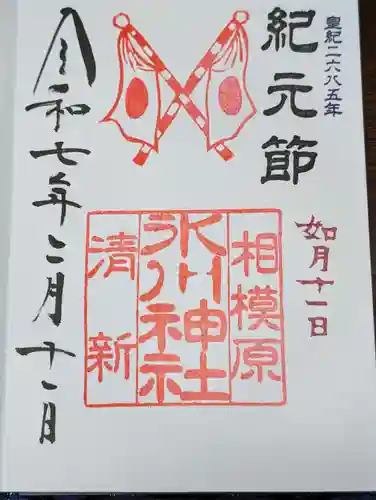 皇紀二六八五年
紀元節
如月十一日
相模原
氷川神社
清新
令和七年二月十一日